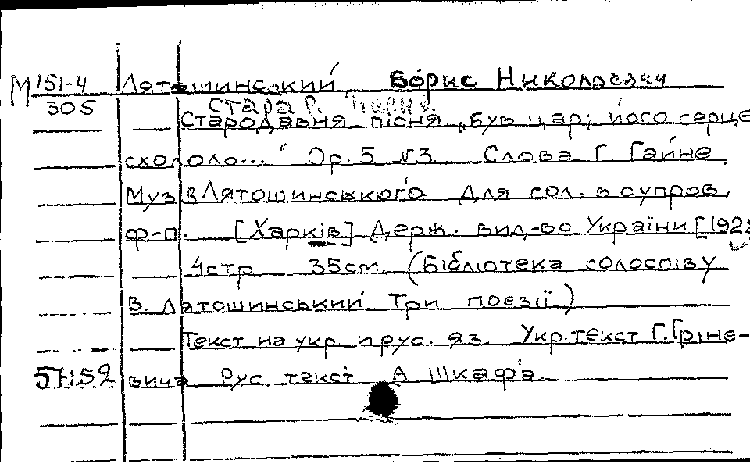 М 151-4 Лятошинський, Борис Николаевич
305 Стара р.
Стародавня пісня „Був цар; його серце
схололо..." Ор. 5 №3. Слова Г. Гайне.
Муз. В. Лятошинського для сол. в супров.
ф-п. [Харків] Держ. вид-во України [192
4 стр. 35 см. (Бібліотека солоспіву
В. Лятошинський Три поезії)
Текст на укр. и рус. яз. Укр. текст Г. Гріне-
вича Рус. текст А. Шкафа